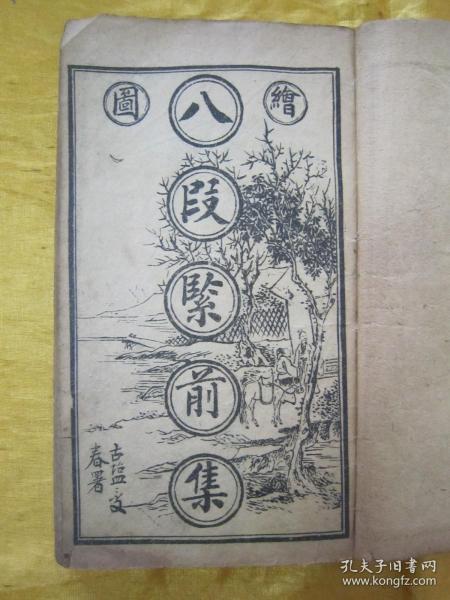 繪圖
八段緊前集
春署
孔夫子旧书网
www.kongfz.com